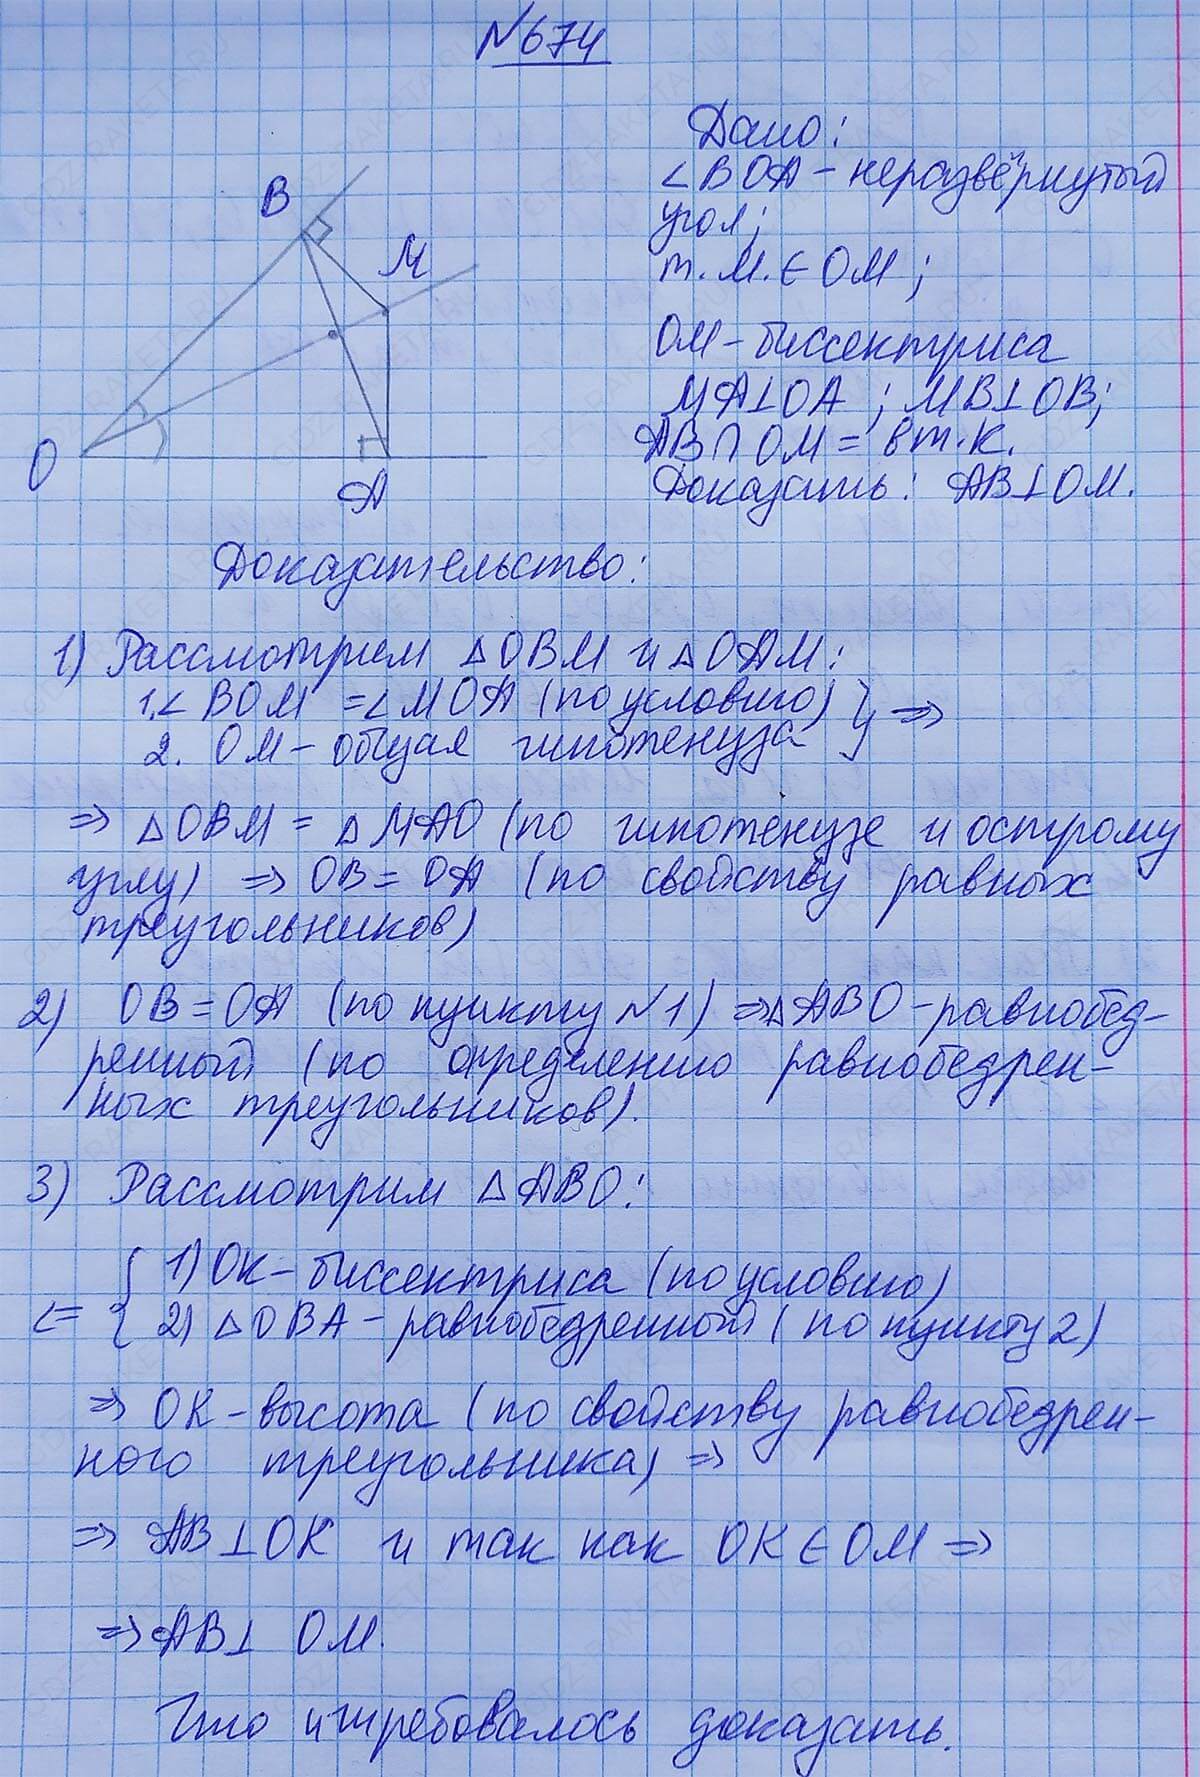 №674
Дано:
∠BOA - неразвёрнутый
угол;
т. М. ∈ OM;
OM - биссектриса
MA⊥OA ; MB⊥OB;
AB∩OM = в т. K.
Доказать: AB⊥OM.
B
M
O
A
Доказательство:
1) Рассмотрим △OBM и △OAM:
1. ∠BOM = ∠MOA (по условию) } =>
2. OM - общая гипотенуза
=> △OBM = △MAO (по гипотенузе и острому
углу) => OB = OA (по свойству равных
треугольников)
2) OB = OA (по пункту №1) => △ABO - равнобед-
ренный (по определению равнобедрен-
ных треугольников).
3) Рассмотрим △ABO:
{ 1) OK - биссектриса (по условию)
<= { 2) △OBA - равнобедренный (по пункту 2)
=> OK - высота (по свойству равнобедрен-
ного треугольника) =>
=> AB⊥OK и так как OK ∈ OM =>
=> AB⊥ OM.
Что и требовалось доказать.